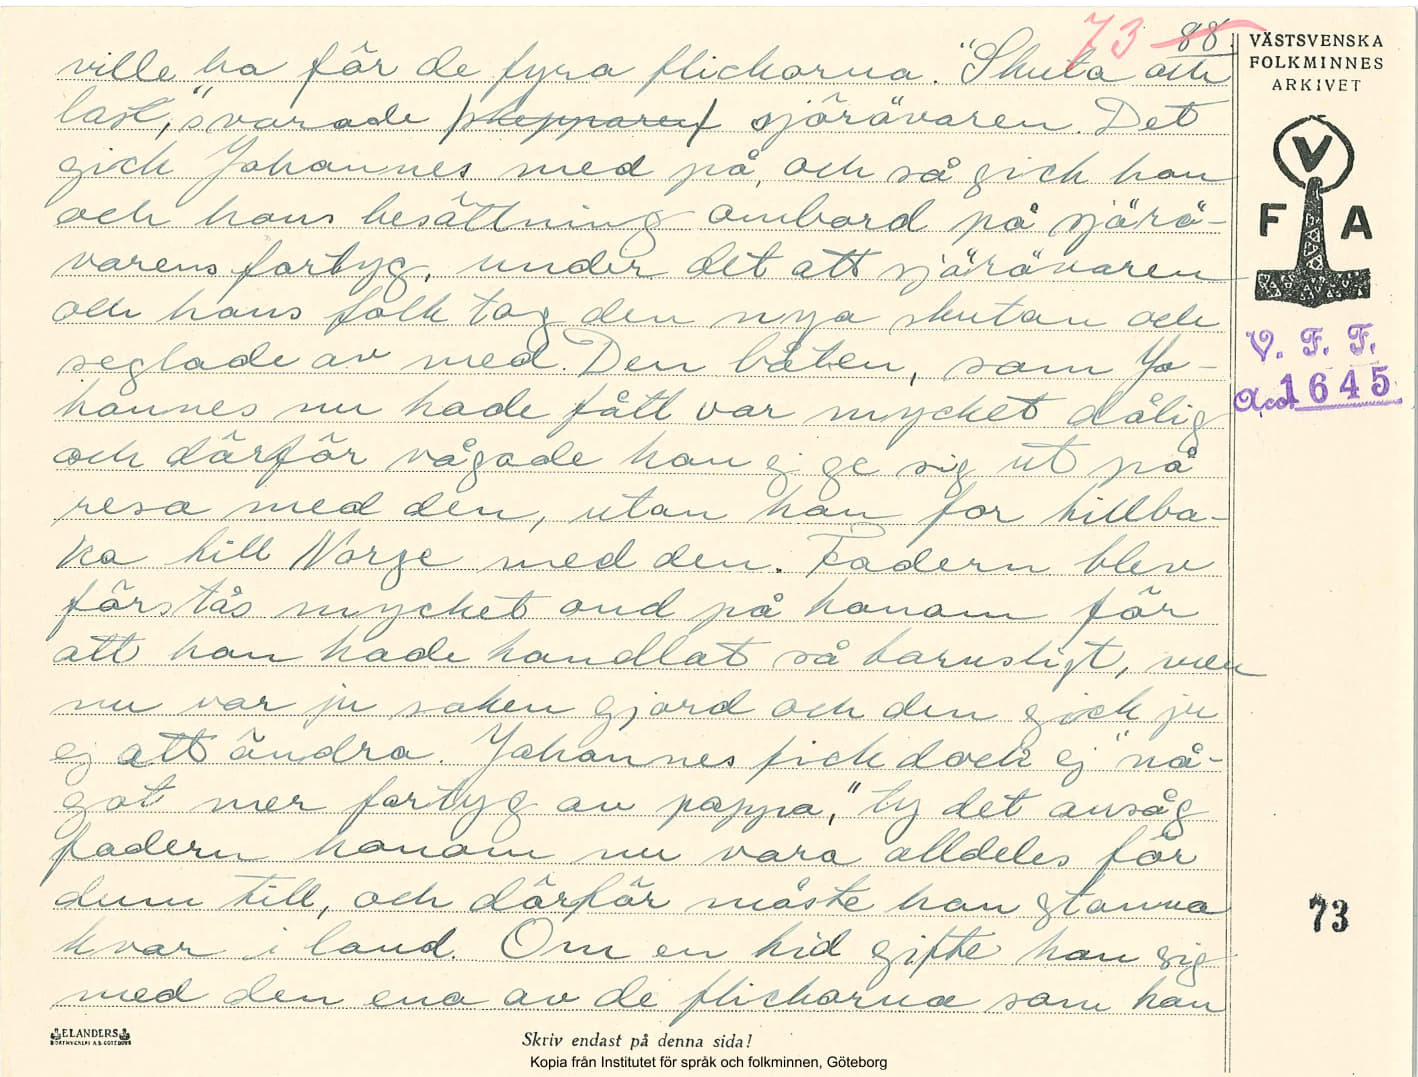 73 88
ville ha för de fyra flickorna. "Skuta och
last," svarade /skepparen/ sjörövaren. Det
gick Johannes med på, och så gick han
och hans besättning ombord på sjörö-
varens fartyg, under det att sjörövaren
och hans folk tog den nya skutan och
seglade av med. Den båten, som Jo-
hannes nu hade fått var mycket dålig
och därför vågade han ej ge sig ut på
resa med den, utan han for tillba-
ka till Norge med den. Fadern blev
förstås mycket ond på honom för
att han hade handlat så barnsligt, men
nu var ju saken gjord och den gick ju
ej att ändra. Johannes fick dock ej "nå-
got mer fartyg av pappa," ty det ansåg
fadern honom nu vara alldeles för
dum till, och därför måste han stanna
kvar i land. Om en tid gifte han sig
med den ena av de flickorna som han
VÄSTSVENSKA
FOLKMINNES
ARKIVET
V
F A
V. F. F.
Acc. 1645
73
ELANDERS
BOKTRYCKERI A.B. GÖTEBORG
Skriv endast på denna sida!
Kopia från Institutet för språk och folkminnen, Göteborg